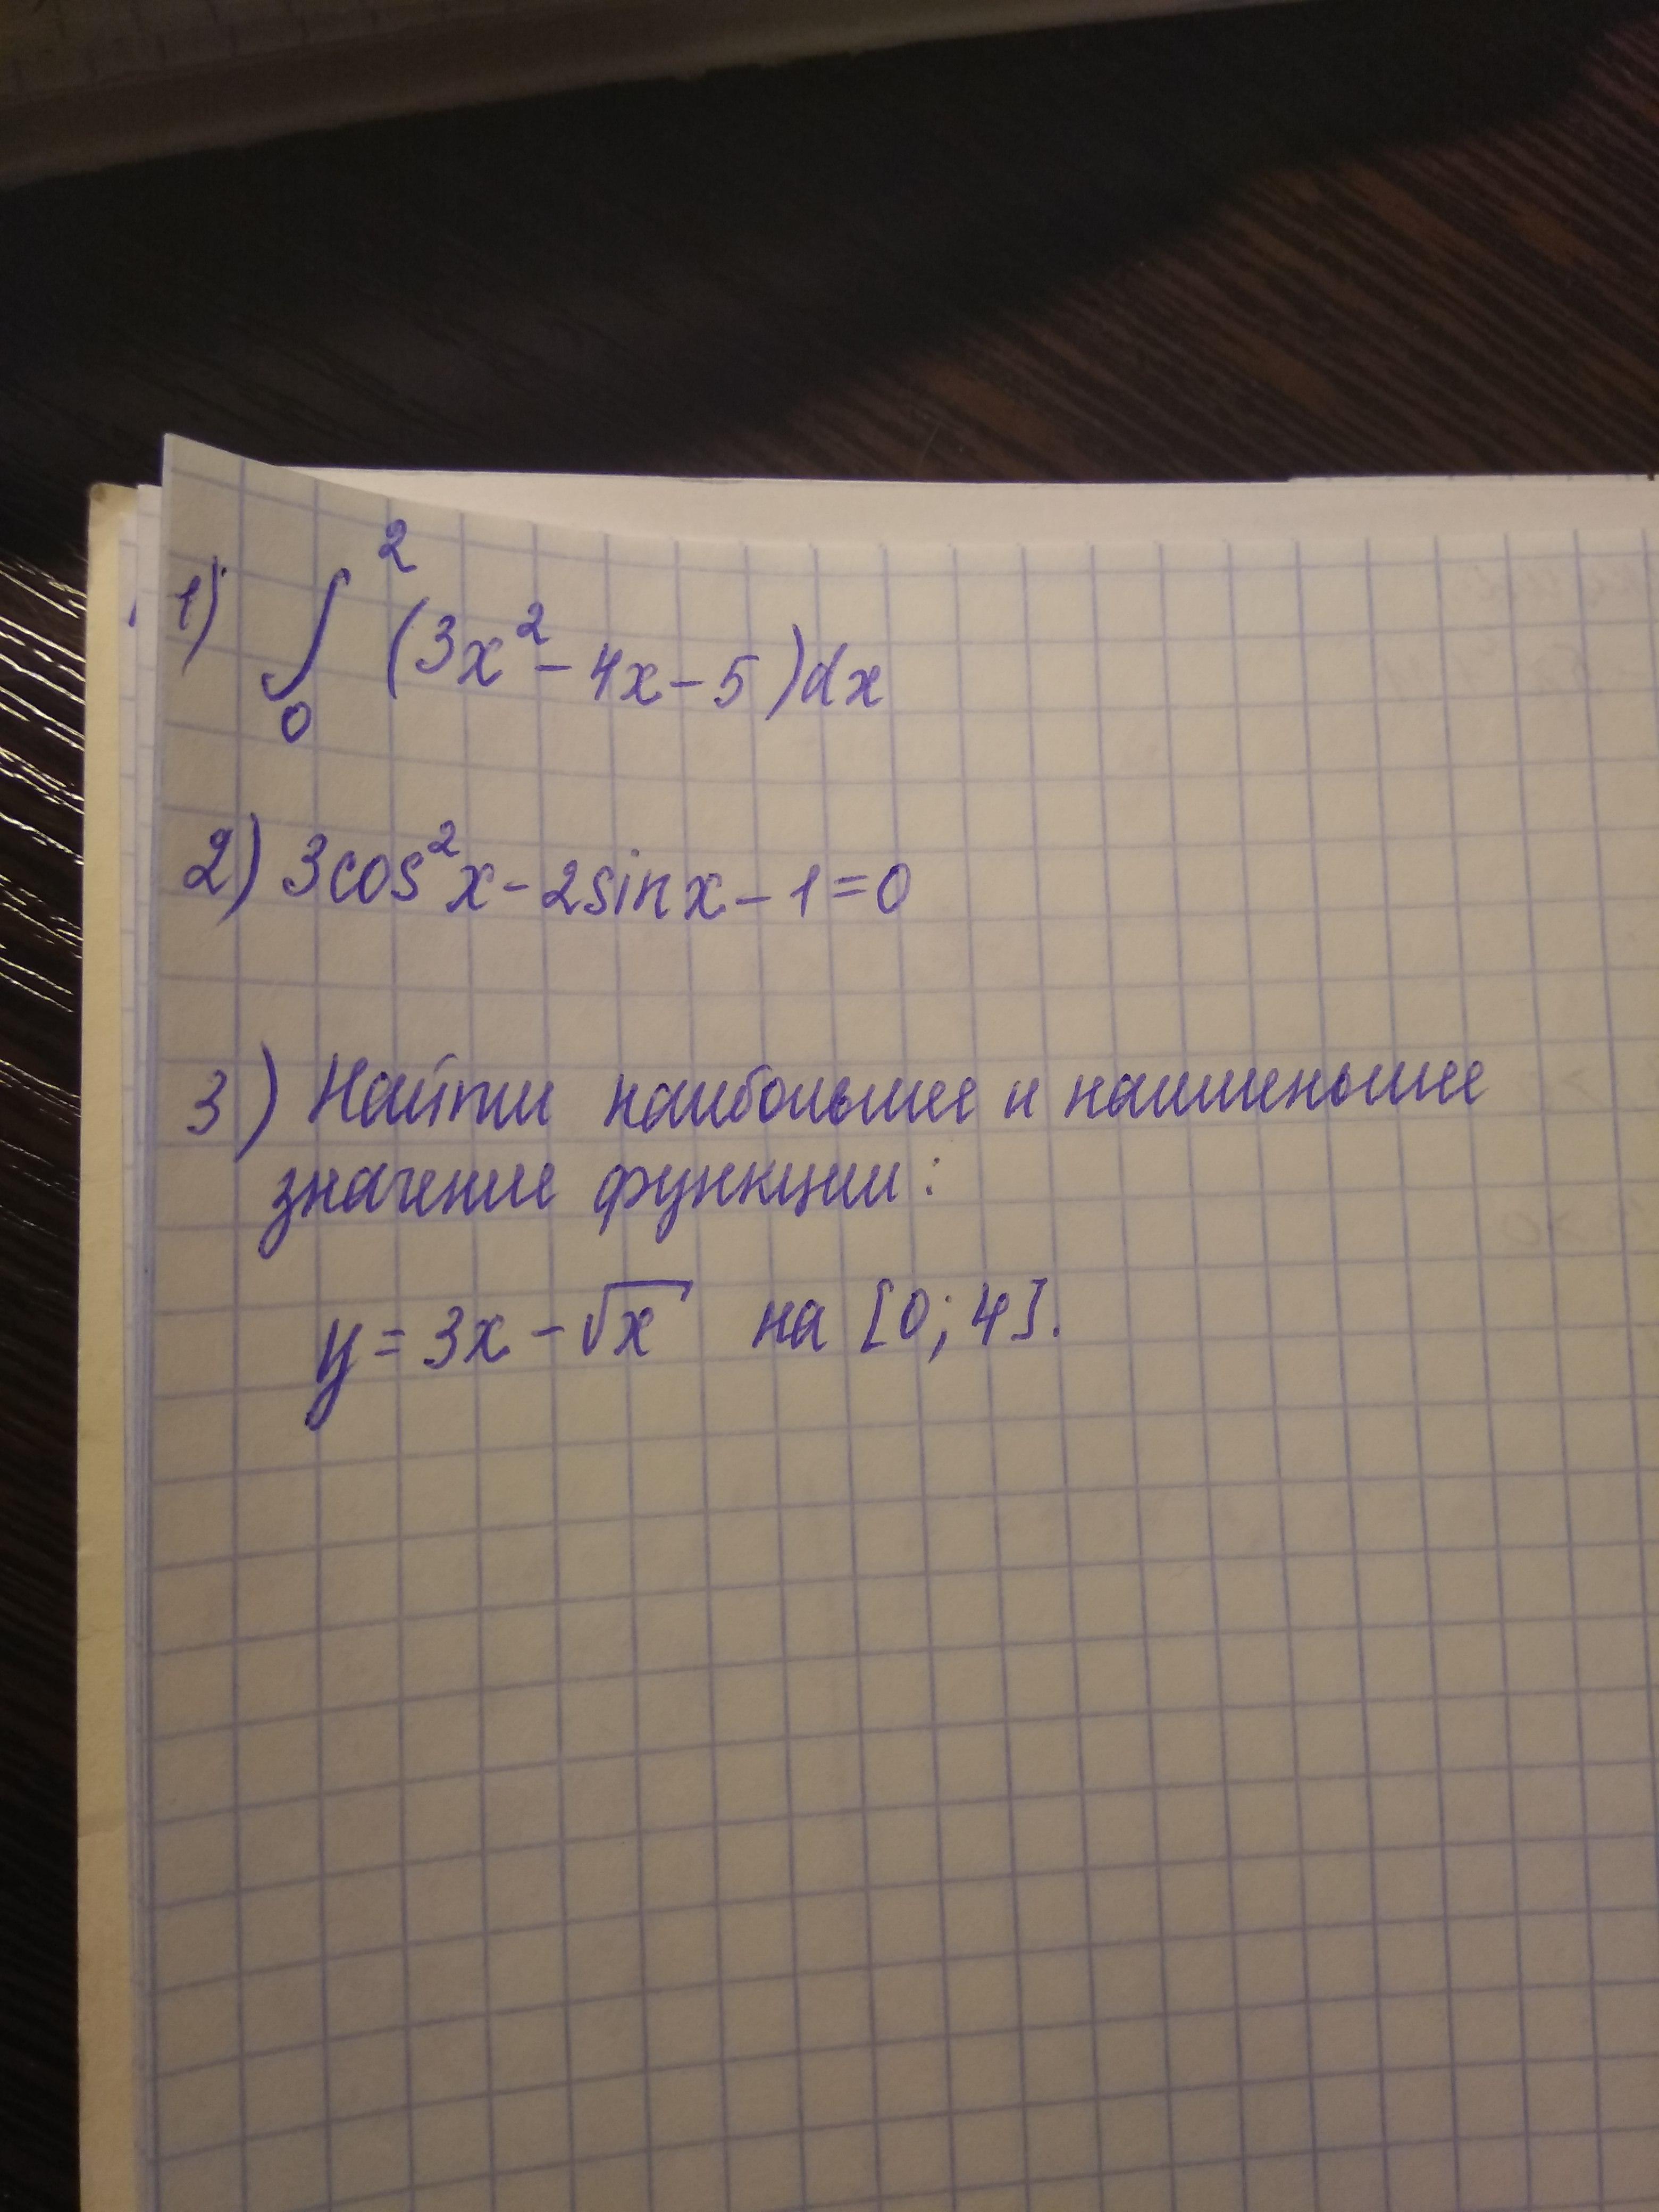 1) ∫₀² (3x² - 4x - 5)dx
2) 3cos²x - 2sinx - 1 = 0
3) Найти наибольшее и наименьшее
значение функции:
y = 3x - √x на [0; 4].